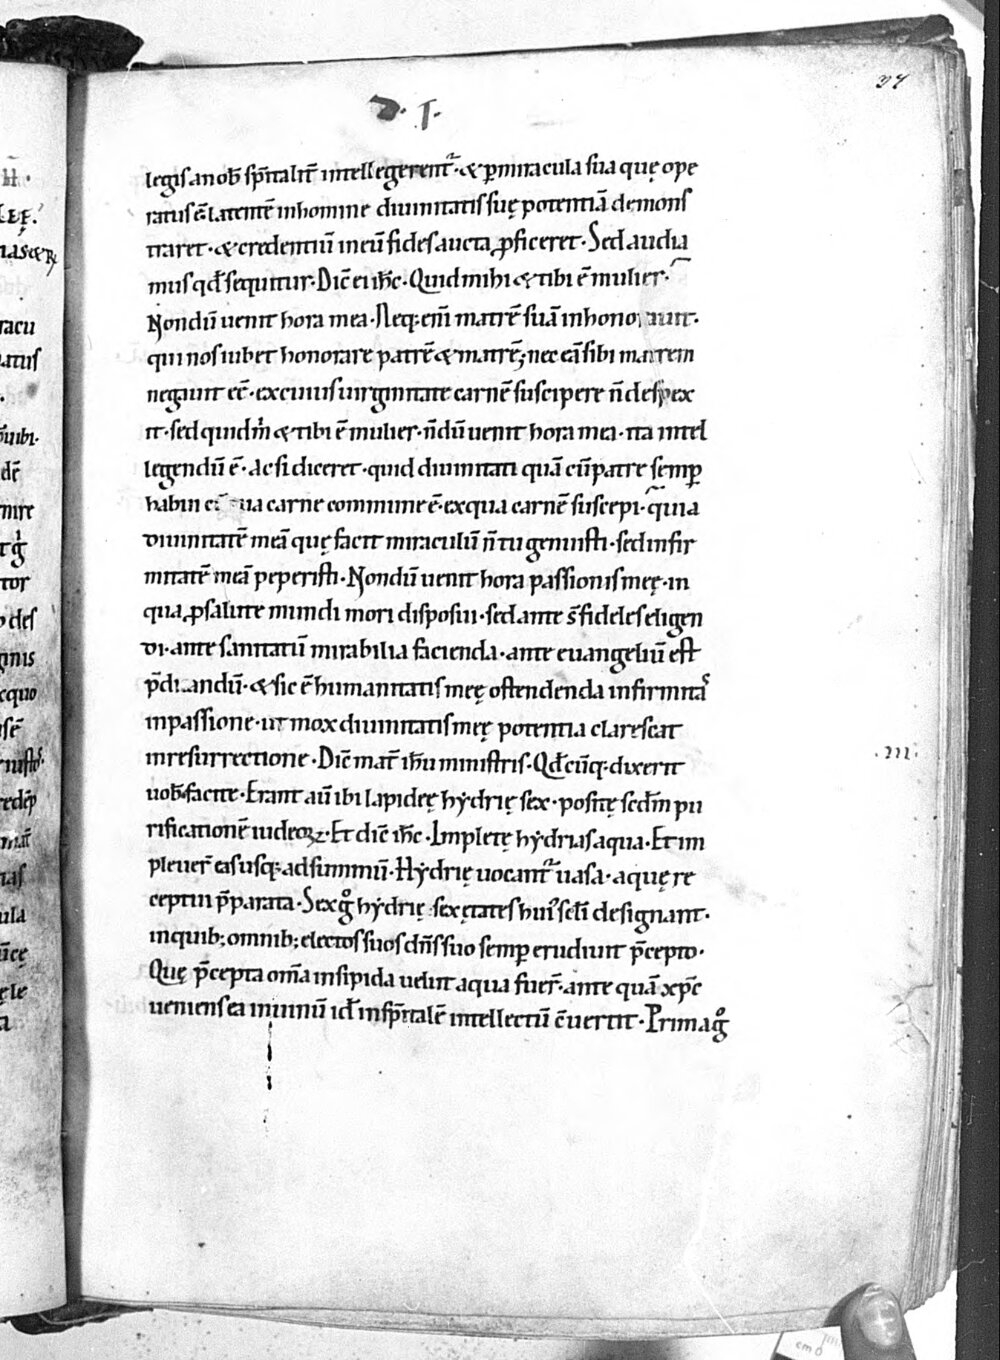 37
D. I.
legis a nob̄ sp̄italit̄ intellegerent᷑·& ꝑ miracula sua quę ope
ratus ē latentē in homine diuinitatis suę potentiā demons
traret·& credentiū in eū fides aucta ꝓficeret·Sed audia
mus qđ sequitur·Dic̄ ei ihc̄·Quid mihi & tibi ē mulier·
Nondū uenit hora mea·Neq; eni᷑ matrē suā inhonorauit·
qui nos iubet honorare patrē & matrē; nec eā sibi matrem
negauit eē·ex cuius uirginitate carnē suscipere n̄ despex
it·sed quid m̍ & tibi ē mulier·n̄dū uenit hora mea·ita intel
legendū ē·ac si diceret·quid diuinitati quā cū patre semꝑ
habui cū tua carne commune ē·ex qua carnē suscepi·quia
diuinitatē meā quę facit miraculū n̄ tu genuisti·sed infir
mitatē meā peperisti·Nondū uenit hora passionis meę·in
qua ꝓ salute mundi mori disposui·sed ante s̄ fideles eligen
di·ante sanitatū mirabilia facienda·ante euangeliū est
p̄dicandū·& sic ē humanitatis meę ostendenda infirmitaˢ
in passione·ut mox diuinitatis meę potentia clarescat
in resurrectione·Dic̄ mat̄ ihū ministris·Qđcūq; dixerit
uob̄ facite·Erant aū ibi lapideę hẏdrię sex·positę scđm pu
rificationē iudeoꝝ·Et dic̄ ihc̄·Impletę hẏdrias aqua·Et im
pleuer̄ eas usq; ad summū·Hẏdrię uocant᷑ uasa·aquę re
ceptui p̄parata·Sex gͦ hẏdrię sex ętates hui᷒ sc̄li designant·
in quib; omnib; electos suos dn̄s suo semꝑ erudiuit p̄cepto·
Quę p̄cepta om̄a insipida uelut aqua fuer̄·ante quā xp̄c
ueniens ea in uinū id̄ in sp̄italē intellectū c̄uertit·Prima gͦ
·III·